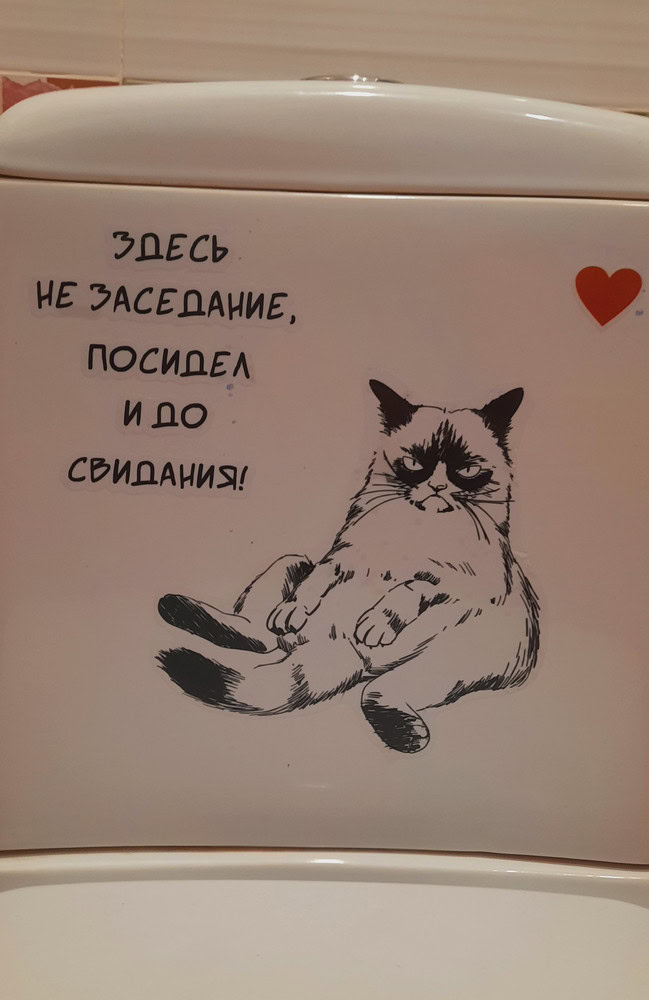 ЗДЕСЬ
НЕ ЗАСЕДАНИЕ,
ПОСИДЕЛ
И ДО
СВИДАНИЯ!